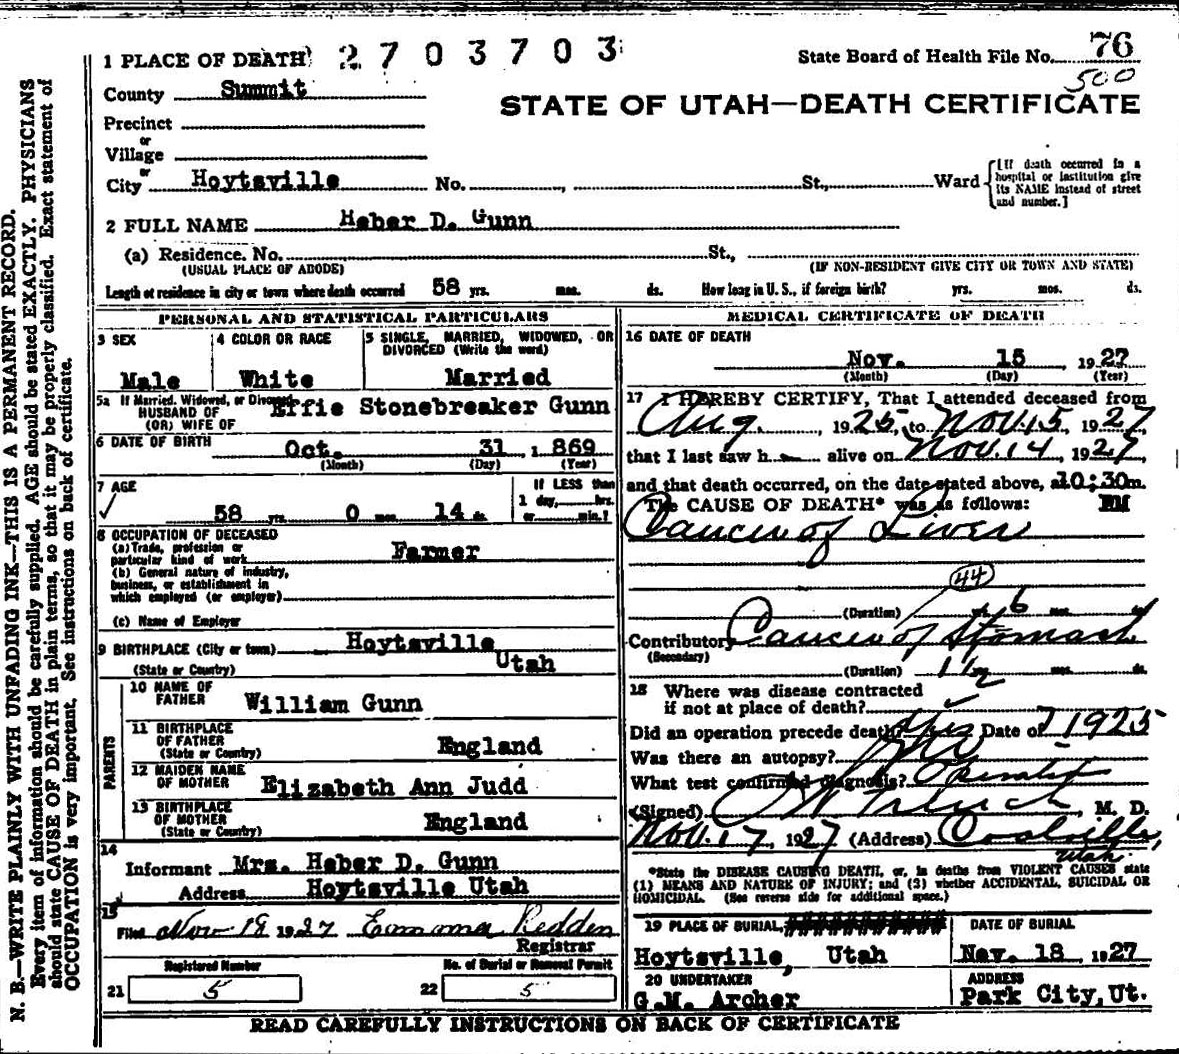 1 PLACE OF DEATH 2703703 State Board of Health File No. 76
500
County Summit
STATE OF UTAH—DEATH CERTIFICATE
Precinct
or
Village
or
City Hoytsville No. , St., Ward
[If death occurred in a hospital or institution give its NAME instead of street and number.]
2 FULL NAME Heber D. Gunn
(a) Residence. No. St.,
(USUAL PLACE OF ABODE) (IF NON-RESIDENT GIVE CITY OR TOWN AND STATE)
Length of residence in city or town where death occurred 58 yrs. mos. ds. How long in U. S., if foreign birth? yrs. mos. ds.
PERSONAL AND STATISTICAL PARTICULARS
3 SEX Male
4 COLOR OR RACE White
5 SINGLE, MARRIED, WIDOWED, OR DIVORCED (Write the word)
Married
5a If Married, Widowed, or Divorced
HUSBAND OF Effie Stonebreaker Gunn
(OR) WIFE OF
6 DATE OF BIRTH Oct. 31 , 1 869
(Month) (Day) (Year)
7 AGE
58 yrs. 0 mos. 14 ds.
If LESS than
1 day, hrs.
or min.?
8 OCCUPATION OF DECEASED
(a) Trade, profession or
particular kind of work Farmer
(b) General nature of industry,
business, or establishment in
which employed (or employer)
(c) Name of Employer
9 BIRTHPLACE (City or town) Hoytsville
(State or Country) Utah
PARENTS
10 NAME OF FATHER William Gunn
11 BIRTHPLACE OF FATHER (State or Country) England
12 MAIDEN NAME OF MOTHER Elizabeth Ann Judd
13 BIRTHPLACE OF MOTHER (State or Country) England
14
Informant Mrs. Heber D. Gunn
Address Hoytsville Utah
15
Filed Nov 18 1927 Emma Redden
Registrar
Registered Number No. of Burial or Removal Permit
21 5 22 5
MEDICAL CERTIFICATE OF DEATH
16 DATE OF DEATH
Nov. 15 1927
(Month) (Day) (Year)
17 I HEREBY CERTIFY, That I attended deceased from
Aug. , 1925, to Nov. 15, 1927
that I last saw h alive on Nov. 14, 1927,
and that death occurred, on the date stated above, at 10:30 m.
The CAUSE OF DEATH* was as follows:
Cancer of Liver
44
(Duration) yrs. 6 mos.
Contributory Cancer of Stomach
(Secondary)
(Duration) 1 1/2 mos. ds.
18 Where was disease contracted
if not at place of death?
Did an operation precede death? yes Date of 1925
Was there an autopsy? No
What test confirmed diagnosis? Operation
(Signed) , M. D.
Nov. 17, 1927 (Address) Coalville, Utah.
*State the DISEASE CAUSING DEATH, or, in deaths from VIOLENT CAUSES state
(1) MEANS AND NATURE OF INJURY; and (2) whether ACCIDENTAL, SUICIDAL OR
HOMICIDAL. (See reverse side for additional space.)
19 PLACE OF BURIAL, DATE OF BURIAL
Hoytsville, Utah Nov. 18 1927
20 UNDERTAKER ADDRESS
G.M. Archer Park City, Ut.
READ CAREFULLY INSTRUCTIONS ON BACK OF CERTIFICATE
N. B.—WRITE PLAINLY WITH UNFADING INK—THIS IS A PERMANENT RECORD.
Every item of information should be carefully supplied. AGE should be stated EXACTLY. PHYSICIANS
should state CAUSE OF DEATH in plain terms, so that it may be properly classified. Exact statement of
OCCUPATION is very important. See instructions on back of certificate.